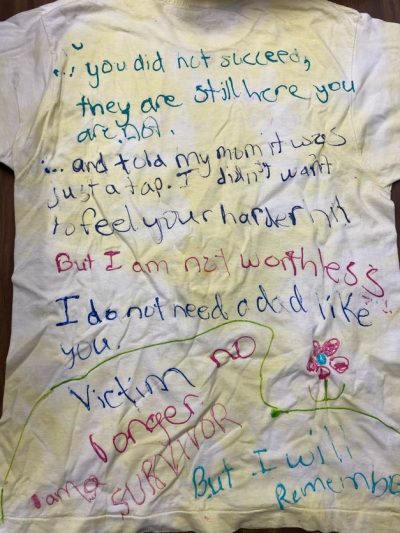 ... you did not succeed,
they are still here you
are not.
... and told my mom it was
just a tap. I didn't want
to feel your harder hit
But I am not worthless
I do not need a dad like
you.
Victim no
longer
I am a SURVIVOR
But I will
Remember